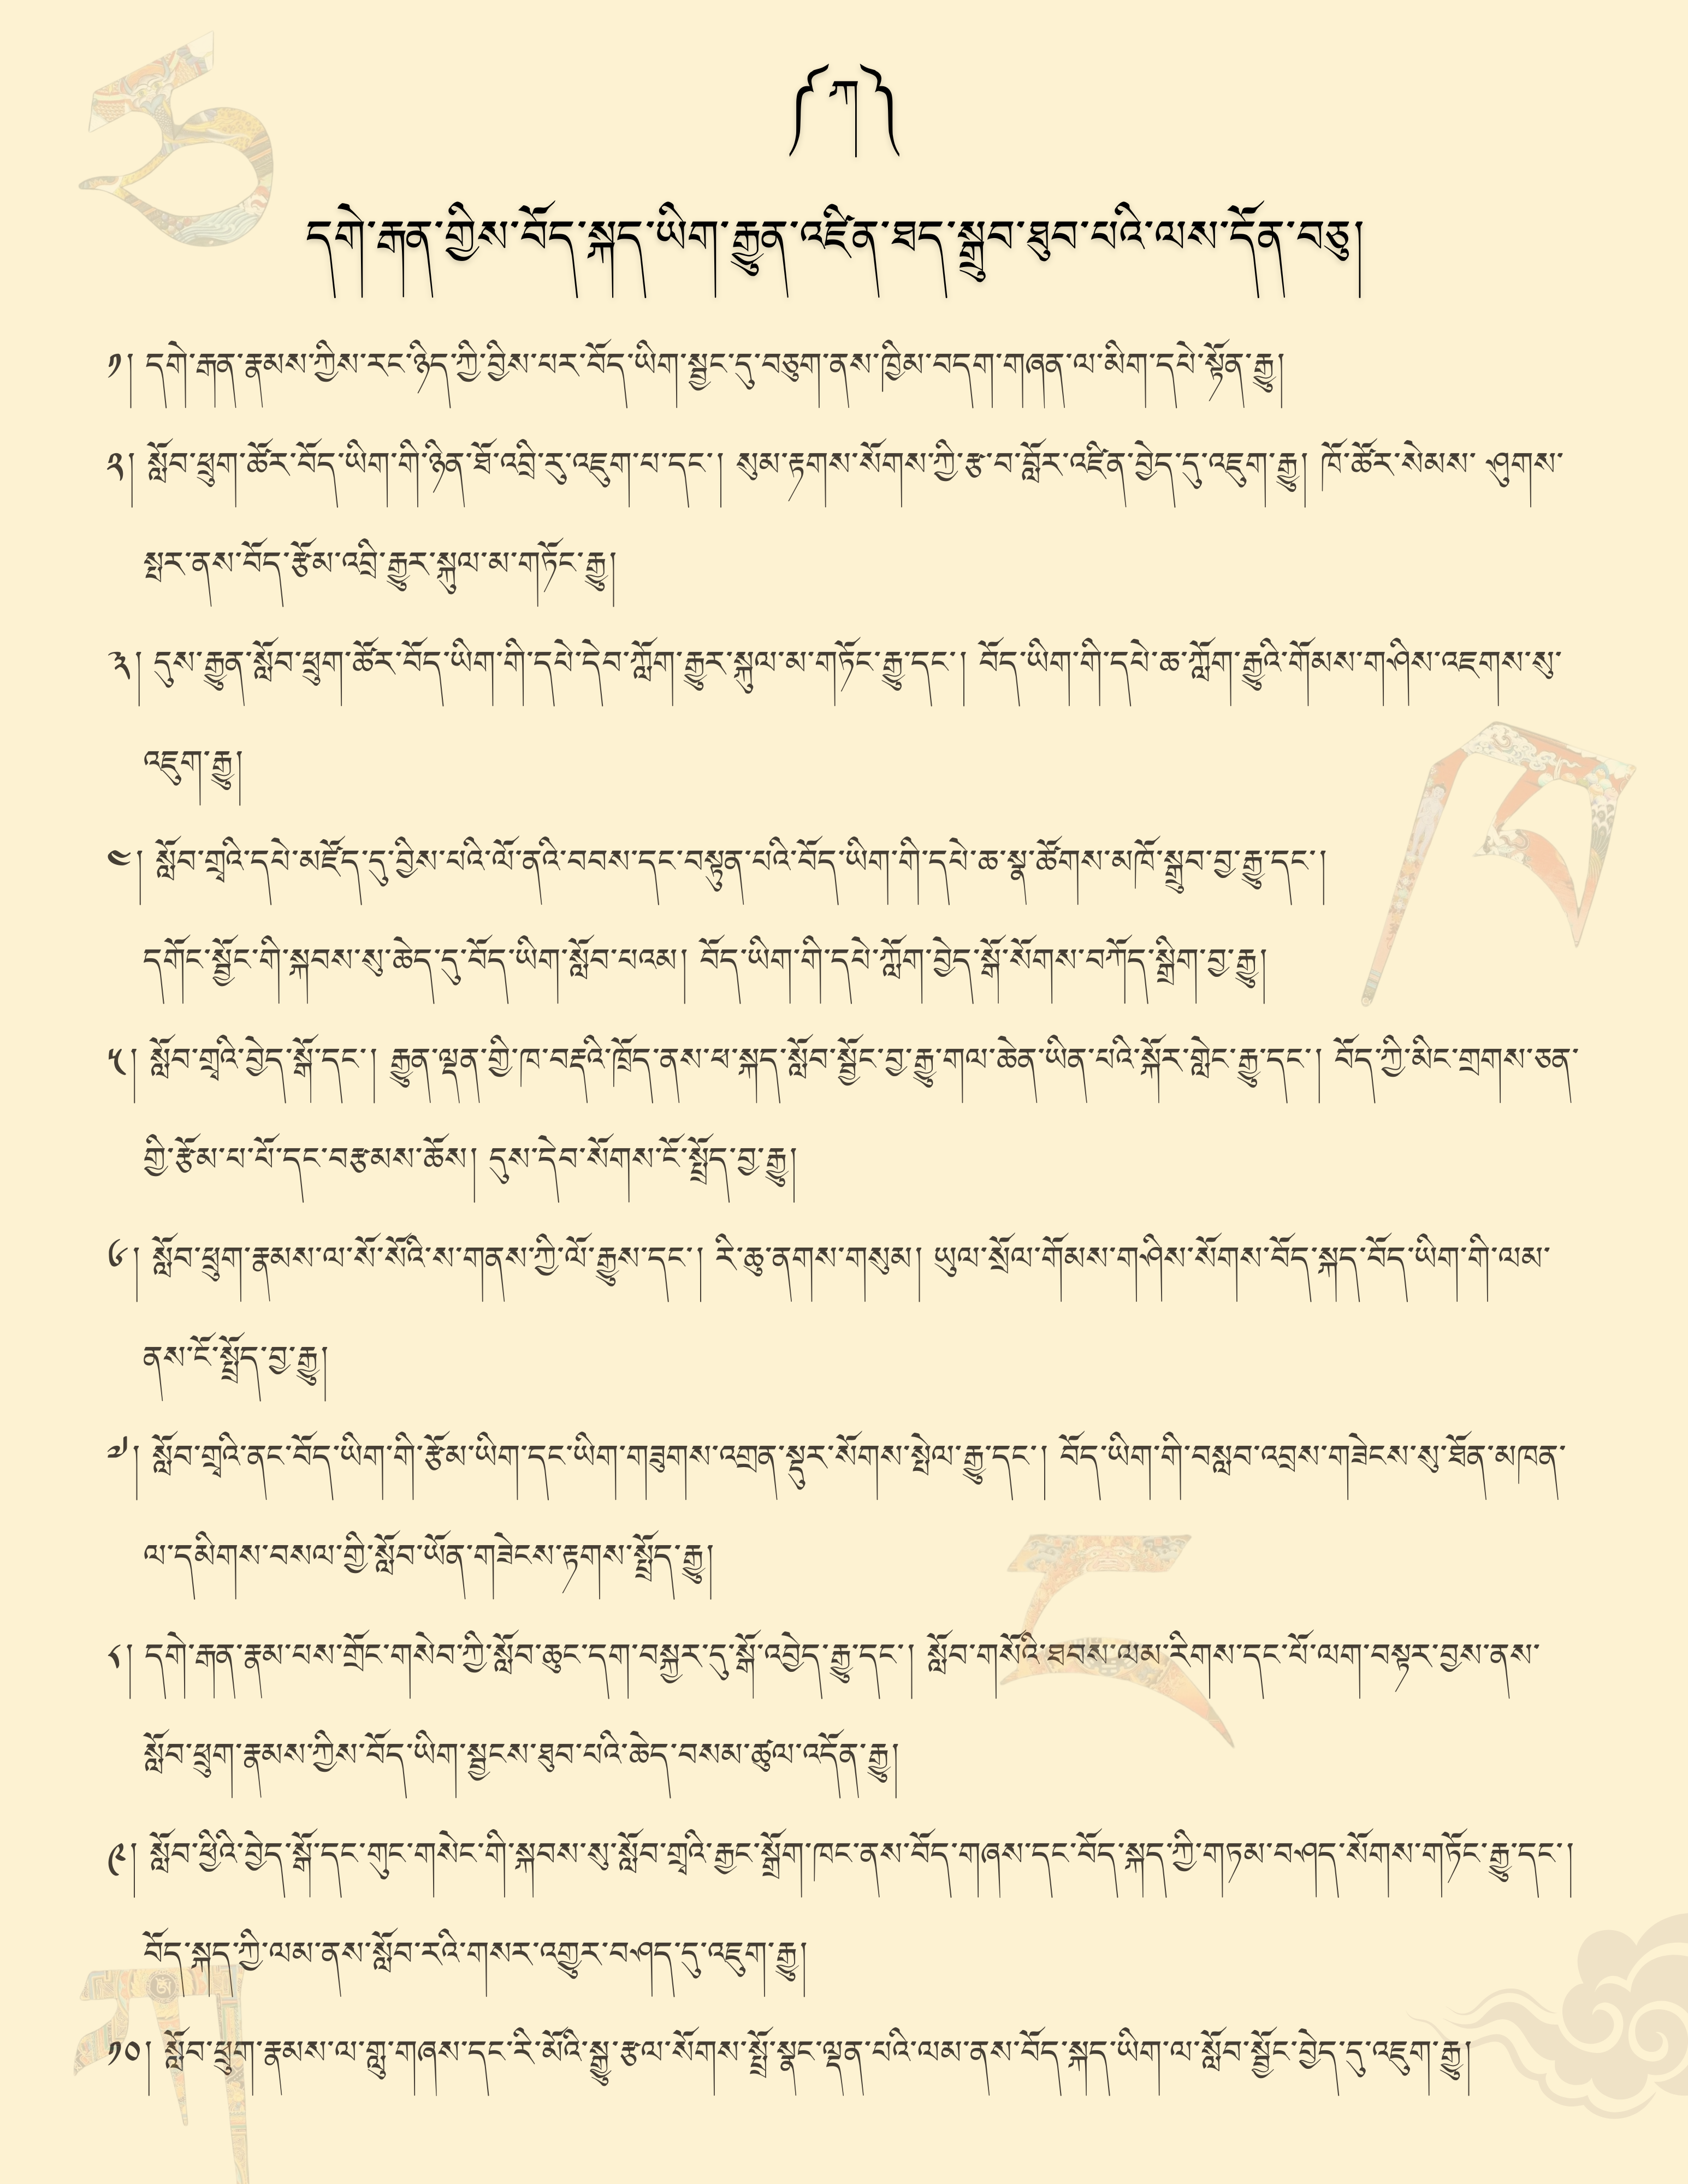 ༼ཀ༽
དགེ་རྒན་གྱིས་བོད་སྐད་ཡིག་རྒྱུན་འཛིན་ཐད་སྒྲུབ་ཐུབ་པའི་ལས་དོན་བཅུ།
༡། དགེ་རྒན་རྣམས་ཀྱིས་རང་ཉིད་ཀྱི་བྱིས་པར་བོད་ཡིག་སྦྱང་དུ་བཅུག་ནས་ཁྱིམ་བདག་གཞན་ལ་མིག་དཔེ་སྟོན་རྒྱུ།
༢། སློབ་ཕྲུག་ཚོར་བོད་ཡིག་གི་ཉིན་ཐོ་འབྲི་རུ་འཇུག་པ་དང་། སུམ་རྟགས་སོགས་ཀྱི་རྩ་བ་བློར་འཛིན་བྱེད་དུ་འཇུག་རྒྱུ། ཁོ་ཚོར་སེམས་ ཤུགས་
སྤར་ནས་བོད་རྩོམ་འབྲི་རྒྱུར་སྐུལ་མ་གཏོང་རྒྱུ།
༣། དུས་རྒྱུན་སློབ་ཕྲུག་ཚོར་བོད་ཡིག་གི་དཔེ་དེབ་ཀློག་རྒྱུར་སྐུལ་མ་གཏོང་རྒྱུ་དང་། བོད་ཡིག་གི་དཔེ་ཆ་ཀློག་རྒྱུའི་གོམས་གཤིས་འཇགས་སུ་
འཇུག་རྒྱུ།
༤། སློབ་གྲྭའི་དཔེ་མཛོད་དུ་བྱིས་པའི་ལོ་ནའི་བབས་དང་བསྟུན་པའི་བོད་ཡིག་གི་དཔེ་ཆ་སྣ་ཚོགས་མཁོ་སྒྲུབ་བྱ་རྒྱུ་དང་།
དགོང་སྦྱོང་གི་སྐབས་སུ་ཆེད་དུ་བོད་ཡིག་སློབ་པའམ། བོད་ཡིག་གི་དཔེ་ཀློག་བྱེད་སྒོ་སོགས་བཀོད་སྒྲིག་བྱ་རྒྱུ།
༥། སློབ་གྲྭའི་བྱེད་སྒོ་དང་། རྒྱུན་ལྡན་གྱི་ཁ་བརྡའི་ཁྲོད་ནས་ཕ་སྐད་སློབ་སྦྱོང་བྱ་རྒྱུ་གལ་ཆེན་ཡིན་པའི་སྐོར་གླེང་རྒྱུ་དང་། བོད་ཀྱི་མིང་གྲགས་ཅན་
གྱི་རྩོམ་པ་པོ་དང་བརྩམས་ཆོས། དུས་དེབ་སོགས་ངོ་སྤྲོད་བྱ་རྒྱུ།
༦། སློབ་ཕྲུག་རྣམས་ལ་སོ་སོའི་ས་གནས་ཀྱི་ལོ་རྒྱུས་དང་། རི་ཆུ་ནགས་གསུམ། ཡུལ་སྲོལ་གོམས་གཤིས་སོགས་བོད་སྐད་བོད་ཡིག་གི་ལམ་
ནས་ངོ་སྤྲོད་བྱ་རྒྱུ།
༧། སློབ་གྲྭའི་ནང་བོད་ཡིག་གི་རྩོམ་ཡིག་དང་ཡིག་གཟུགས་འགྲན་སྡུར་སོགས་སྤེལ་རྒྱུ་དང་། བོད་ཡིག་གི་བསླབ་འབྲས་གཟེངས་སུ་ཐོན་མཁན་
ལ་དམིགས་བསལ་གྱི་སློབ་ཡོན་གཟེངས་རྟགས་སྤྲོད་རྒྱུ།
༨། དགེ་རྒན་རྣམ་པས་གྲོང་གསེབ་ཀྱི་སློབ་ཆུང་དག་བསྐྱར་དུ་སྒོ་འབྱེད་རྒྱུ་དང་། སློབ་གསོའི་ཐབས་ལམ་རིགས་དང་པོ་ལག་བསྟར་བྱས་ནས་
སློབ་ཕྲུག་རྣམས་ཀྱིས་བོད་ཡིག་སྦྱངས་ཐུབ་པའི་ཆེད་བསམ་ཚུལ་འདོན་རྒྱུ།
༩། སློབ་ཕྱིའི་བྱེད་སྒོ་དང་གུང་གསེང་གི་སྐབས་སུ་སློབ་གྲྭའི་རྒྱང་སྒྲོག་ཁང་ནས་བོད་གཞས་དང་བོད་སྐད་ཀྱི་གཏམ་བཤད་སོགས་གཏོང་རྒྱུ་དང་།
བོད་སྐད་ཀྱི་ལམ་ནས་སློབ་རའི་གསར་འགྱུར་བཤད་དུ་འཇུག་རྒྱུ།
༡༠། སློབ་ཕྲུག་རྣམས་ལ་གླུ་གཞས་དང་རི་མོའི་སྒྱུ་རྩལ་སོགས་སྤྲོ་སྣང་ལྡན་པའི་ལམ་ནས་བོད་སྐད་ཡིག་ལ་སློབ་སྦྱོང་བྱེད་དུ་འཇུག་རྒྱུ།